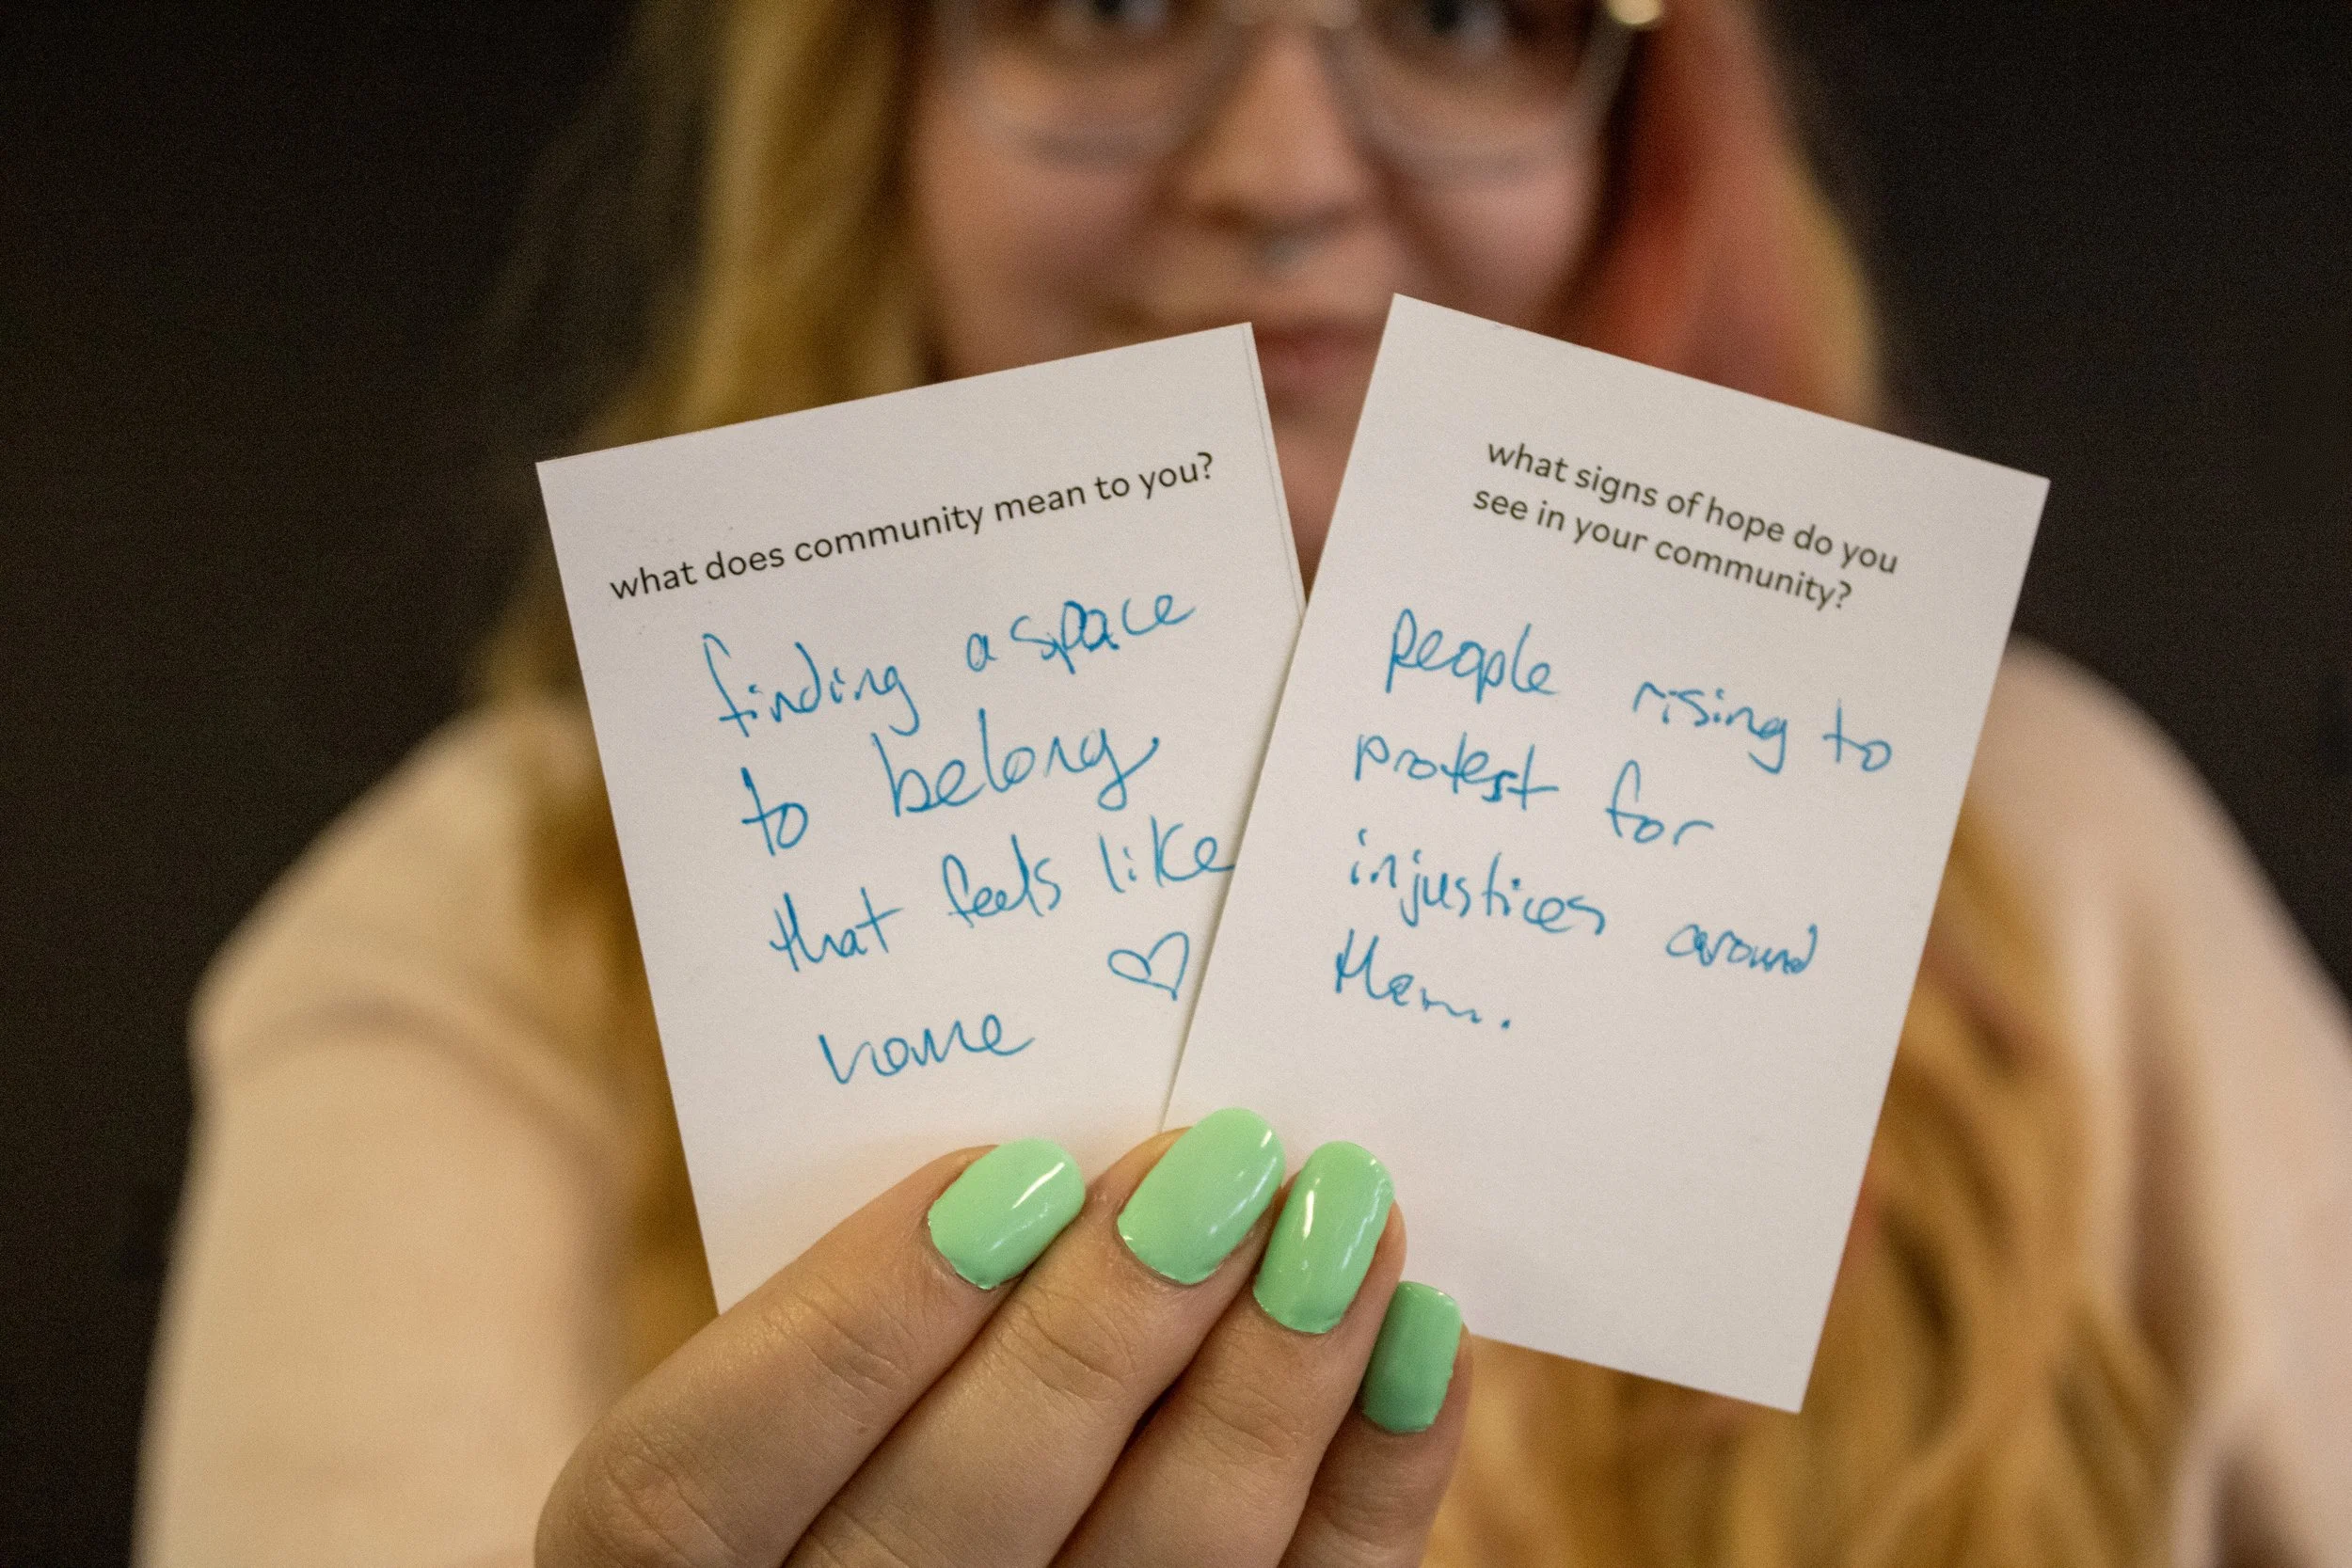 what does community mean to you?
finding a space
to belong
that feels like
home
what signs of hope do you
see in your community?
People rising to
protest for
injustices around
them.